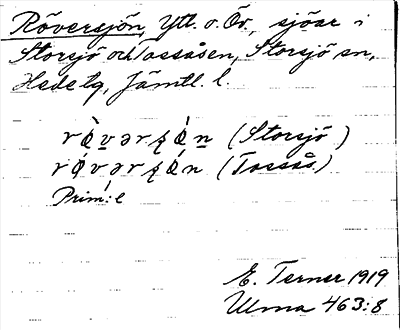 Röversjön, Ytt. o. Öv., sjöar i
Storsjö och Tossåsen, Storsjö sn,
Hede tg, Jämtl. l.
(Storsjö)
(Tossås.)
Prim: l
E. Terner 1919
Ulma 463:8